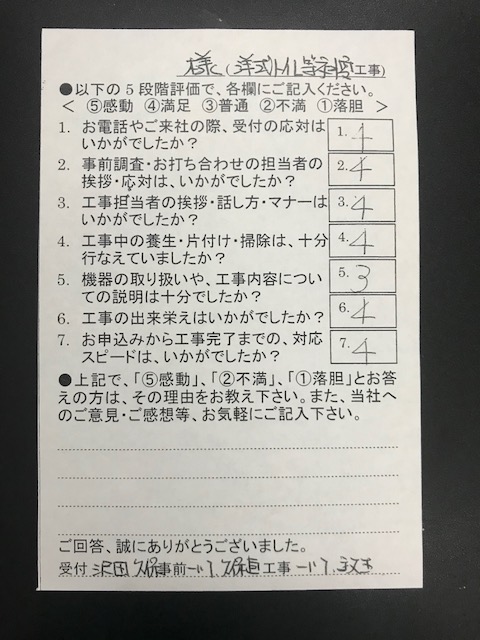 様(洋式トイレ等 工事)
●以下の5段階評価で、各欄にご記入ください。
< ⑤感動 ④満足 ③普通 ②不満 ①落胆 >
1. お電話やご来社の際、受付の応対は
いかがでしたか?
1. 4
2. 事前調査・お打ち合わせの担当者の
挨拶・応対は、いかがでしたか?
2. 4
3. 工事担当者の挨拶・話し方・マナーは
いかがでしたか?
3. 4
4. 工事中の養生・片付け・掃除は、十分
行なえていましたか?
4. 4
5. 機器の取り扱いや、工事内容につい
ての説明は十分でしたか?
5. 3
6. 工事の出来栄えはいかがでしたか?
6. 4
7. お申込みから工事完了までの、対応
スピードは、いかがでしたか?
7. 4
●上記で、「⑤感動」、「②不満」、「①落胆」とお答
えの方は、その理由をお教え下さい。また、当社へ
のご意見・ご感想等、お気軽にご記入下さい。
ご回答、誠にありがとうございました。
受付 沢田 久保 事前 工事